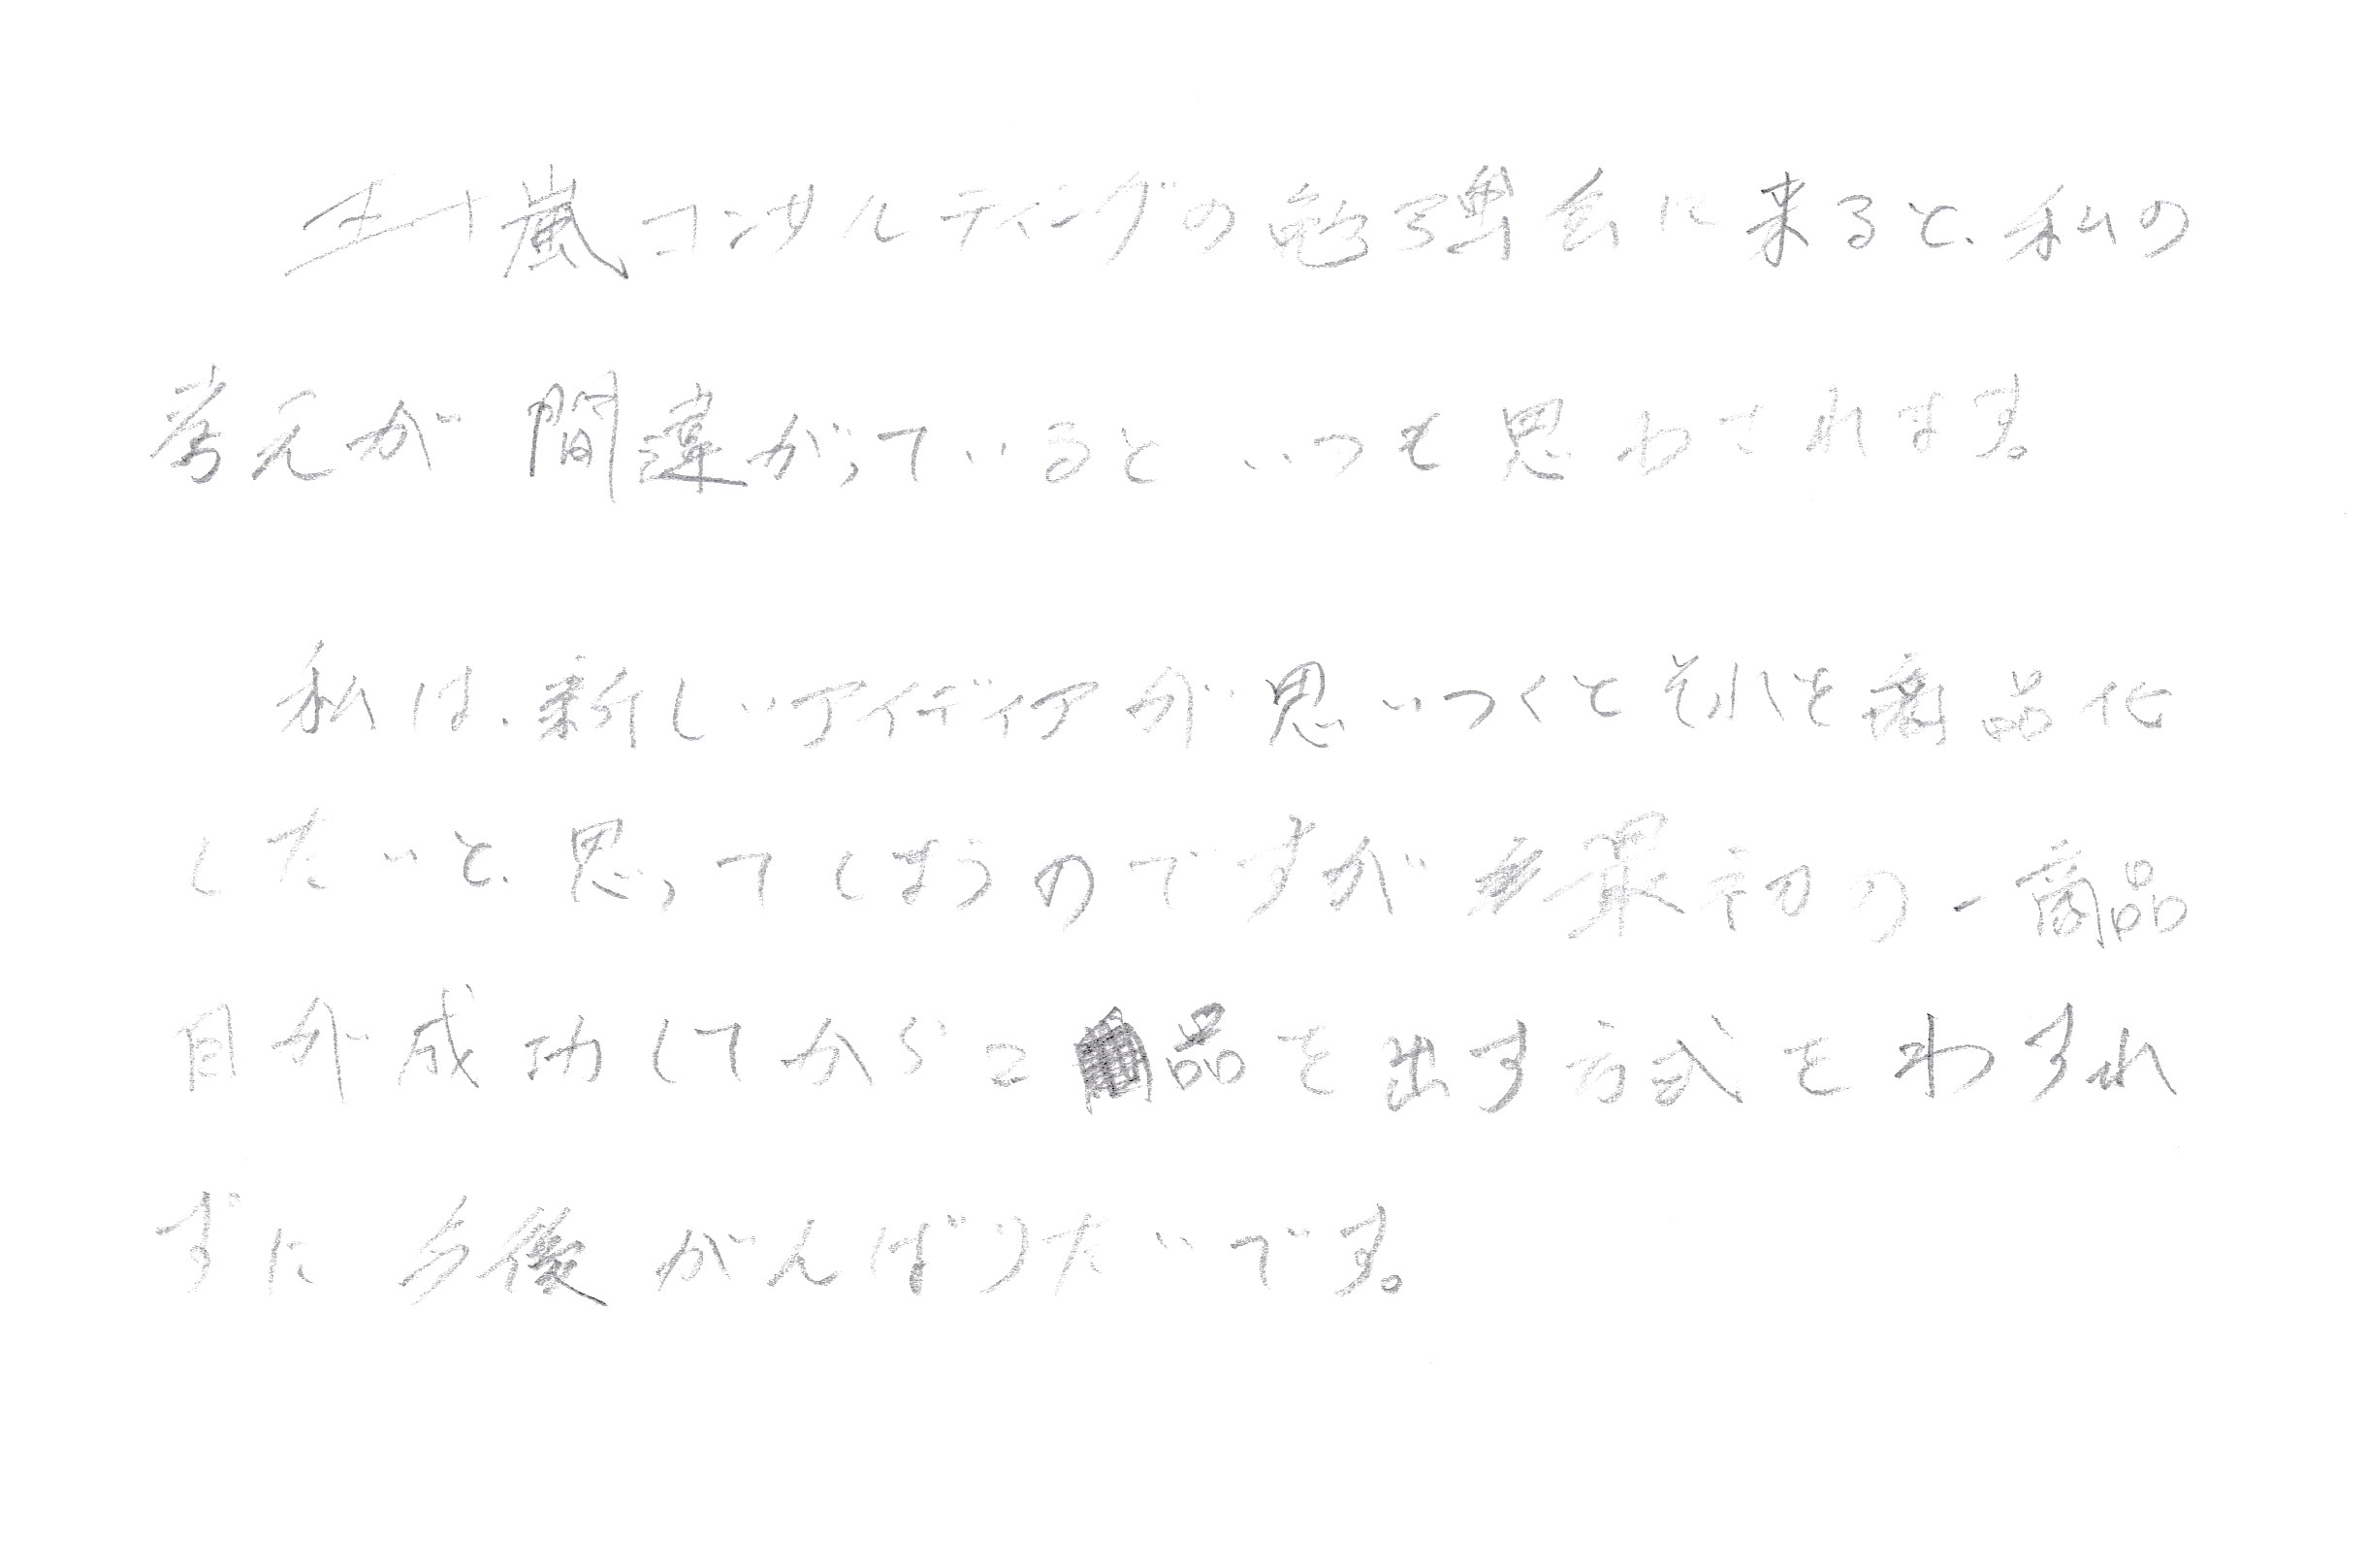 五十嵐コンサルティングの勉強会に来ると、私の
考えが間違がっているといつも思わされます。
私は、新しいアイディアが思いつくとそれを商品化
したいと、思ってしまうのですが最初の一商品
目が成功してから2品を出す方式をわすれ
ずに今後がんばりたいです。